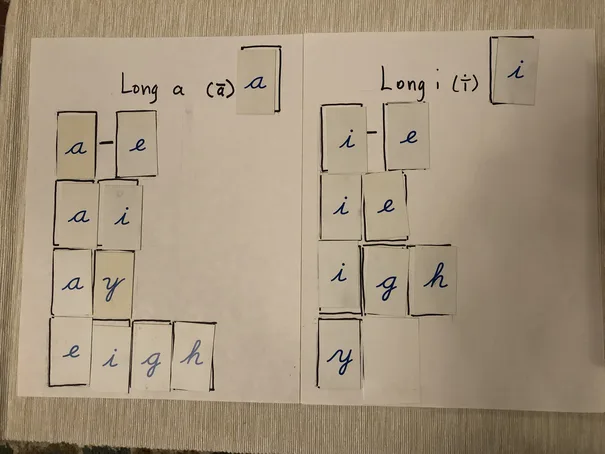 Long a (ā) a
a - e
a i
a y
e i g h
Long i (ī) i
i - e
i e
i g h
y